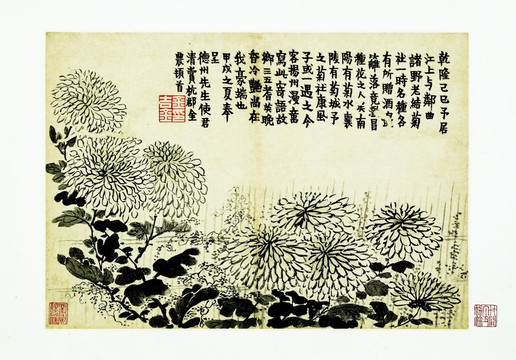 乾隆己巳予居
江上与鄰曲
諸野老結菊
社一時名種各
有所贈酒
籬落竟
種花之人矣南
陽有菊水襄
陵有菊城予
之菊社康風
子或一遇之今
客揚州漫意
寫此寄語故
鄉三五耆英晚
香冷艷尚在
我豪端也
甲戌之夏奉
呈
德州先生使君
清賞杭郡金
農頓首